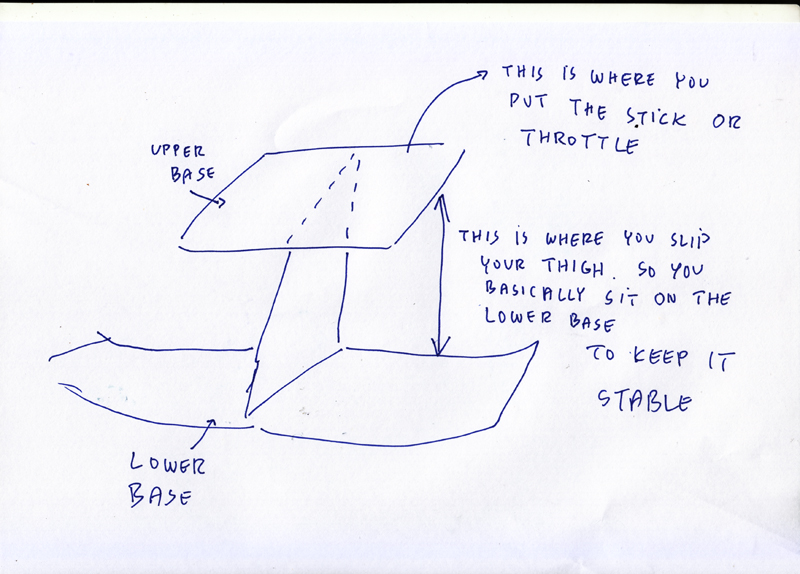 THIS IS WHERE YOU
PUT THE STICK OR
THROTTLE
UPPER
BASE
THIS IS WHERE YOU SLIP
YOUR THIGH. SO YOU
BASICALLY SIT ON THE
LOWER BASE
TO KEEP IT
STABLE
LOWER
BASE